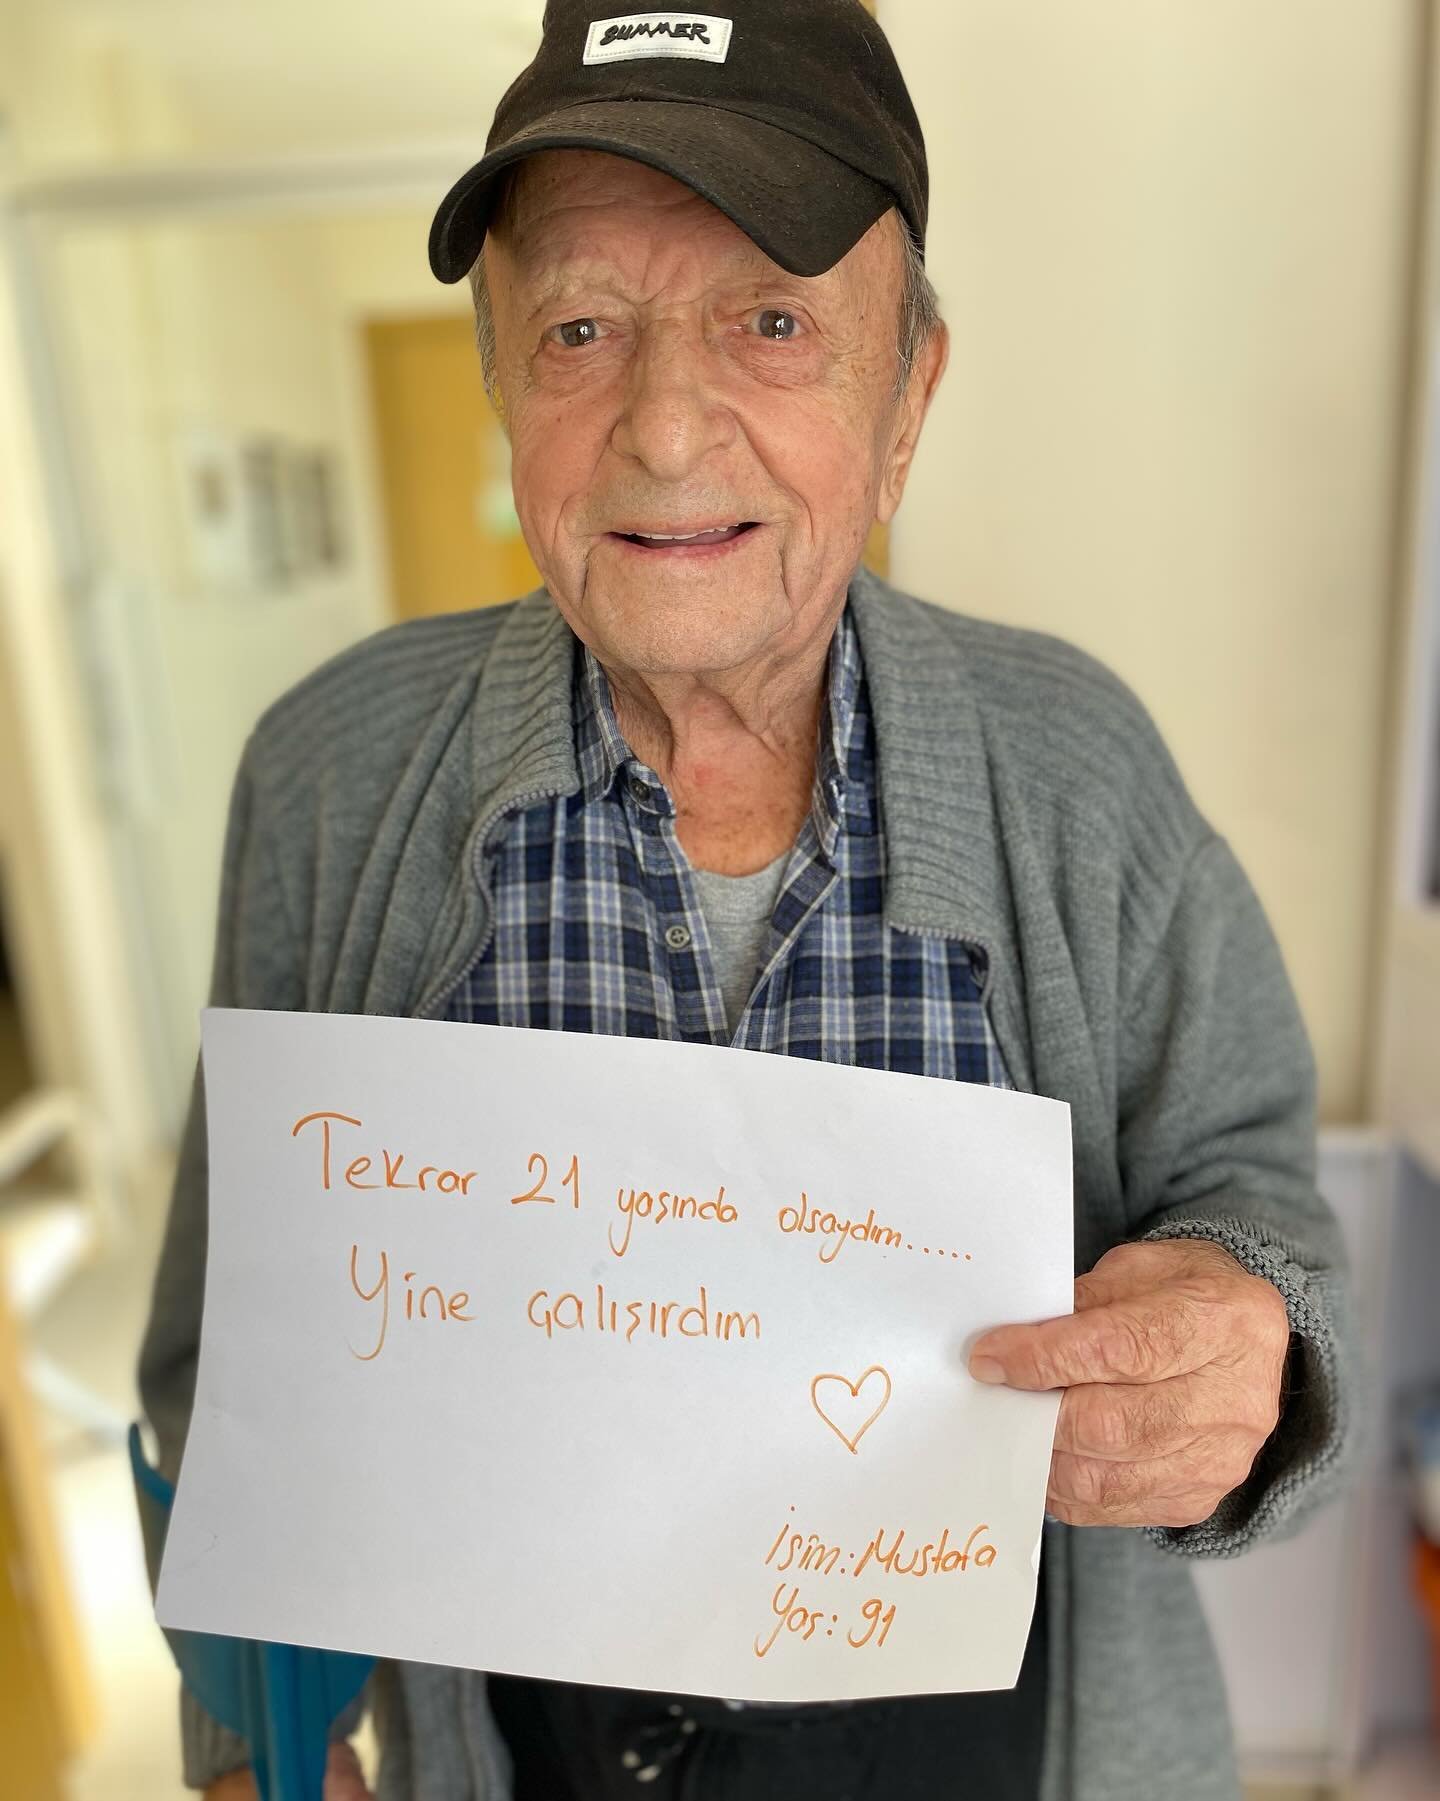 SUMMER
Tekrar 21 yaşında olsaydım.....
Yine çalışırdım
İsim: Mustafa
Yaş: 91